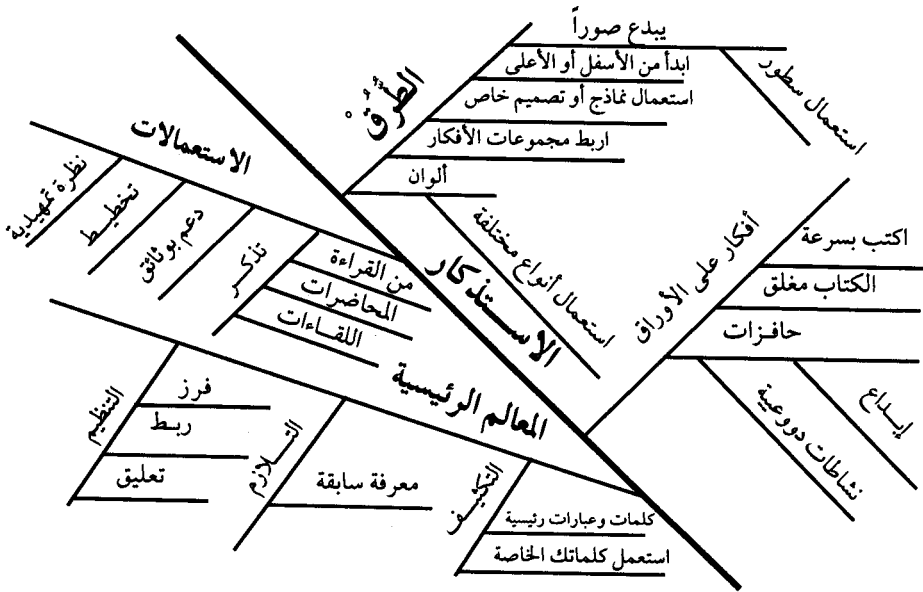 الاستذكار
الطُّرُقْ
يبدع صوراً
استعمال سطور
ابدأ من الأسفل أو الأعلى
استعمال نماذج أو تصميم خاص
اربط مجموعات الأفكار
ألوان
استعمال أنواع مختلفة
أفكار على الأوراق
اكتب بسرعة
الكتاب مغلق
حافزات
إبداع
نشاطات دووعيية
الاستعمالات
نظرة تمهيدية
تخطيط
دعم بوثائق
تذكر
من القراءة
المحاضرات
اللقاءات
المعالم الرئيسية
التنظيم
فرز
ربط
تعليق
التلازم
معرفة سابقة
التكثيف
كلمات وعبارات رئيسية
استعمل كلماتك الخاصة